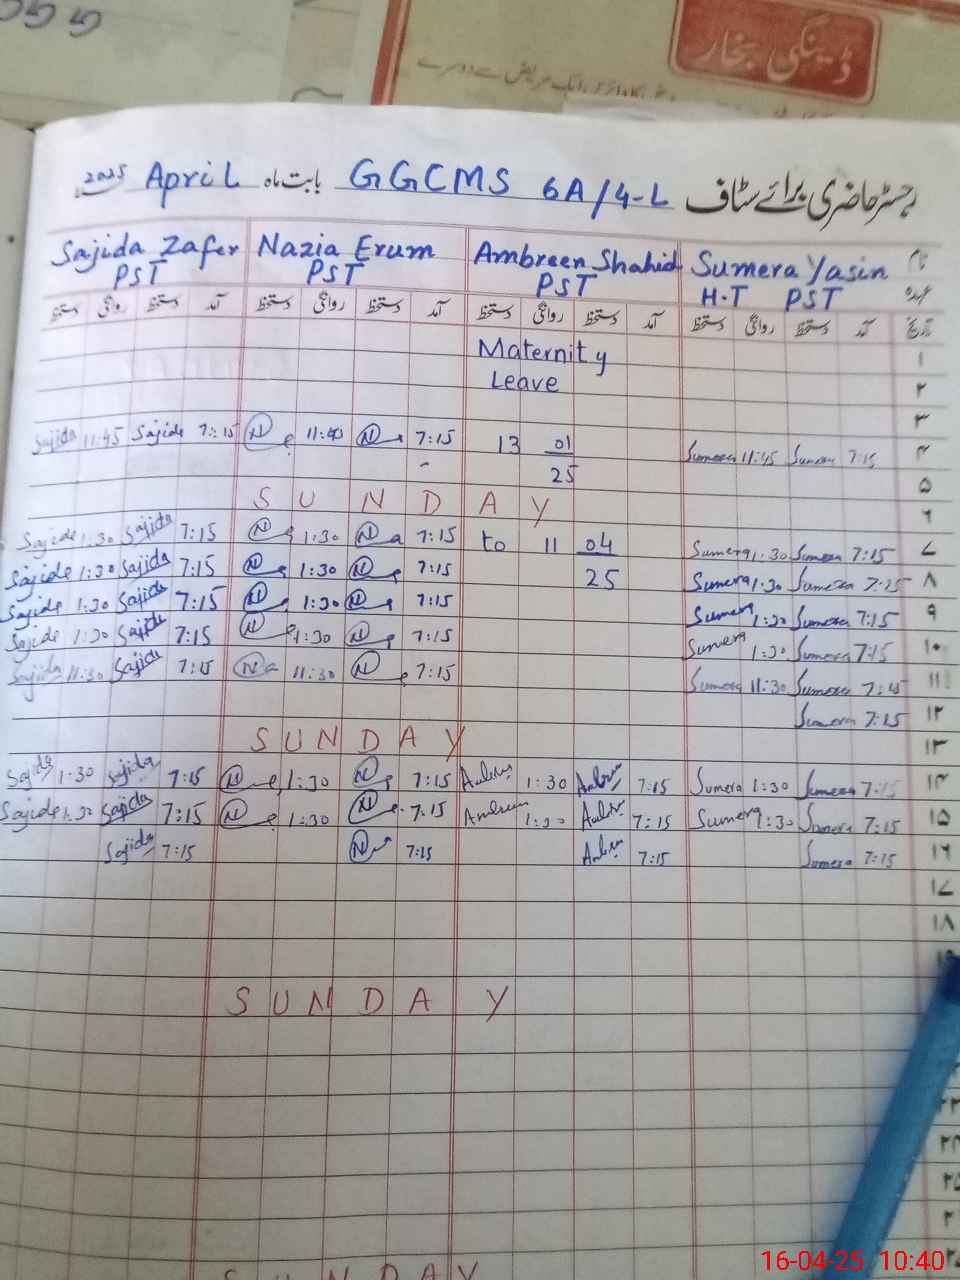 ڈینگی بخار
رجسٹر حاضری برائے سٹاف GGCMS 6A/4-L بابت ماہ April 2025
Sajida Zafer Nazia Erum Ambreen Shahid Sumera Yasin نام
PST PST PST H.T PST عہدہ
دستخط روانگی دستخط آمد دستخط روانگی دستخط آمد دستخط روانگی دستخط آمد دستخط روانگی دستخط آمد تاریخ
Maternity ۱
Leave ۲
۳
Sajida 11:45 Sajida 7:15 N 11:40 N 7:15 13 01 Sumera 11:45 Sumera 7:15 ۴
25 ۵
S U N D A Y ۶
Sajida 1:30 Sajida 7:15 N 1:30 N 7:15 to 11 04 Sumera 1:30 Sumera 7:15 ۷
Sajida 1:30 Sajida 7:15 N 1:30 N 7:15 25 Sumera 1:30 Sumera 7:15 ۸
Sajida 1:30 Sajida 7:15 N 1:30 N 7:15 Sumera 1:30 Sumera 7:15 ۹
Sajida 1:30 Sajida 7:15 N 1:30 N 7:15 Sumera 1:30 Sumera 7:15 ۱۰
Sajida 11:30 Sajida 7:15 N 11:30 N 7:15 Sumera 11:30 Sumera 7:15 ۱۱
Sumera 7:15 ۱۲
S U N D A Y ۱۳
Sajida 1:30 Sajida 7:15 N 1:30 N 7:15 Ambreen 1:30 Ambreen 7:15 Sumera 1:30 Sumera 7:15 ۱۴
Sajida 1:30 Sajida 7:15 N 1:30 N 7:15 Ambreen 1:30 Ambreen 7:15 Sumera 1:30 Sumera 7:15 ۱۵
Sajida 7:15 N 7:15 Ambreen 7:15 Sumera 7:15 ۱۶
۱۷
۱۸
۱۹
S U N D A Y
S U N D A Y
16-04-25 10:40